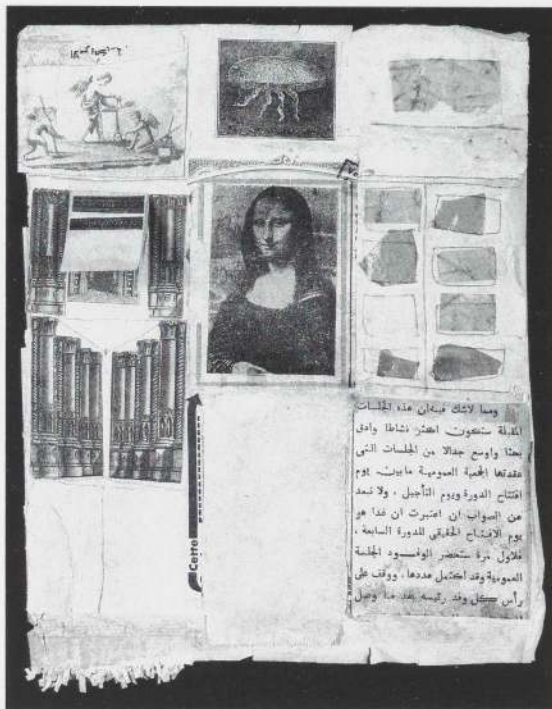 ومما لاشك فيه ان هذه الجلسات
المقبلة ستكون اكثر نشاطا وادق
بحثا واوسع جدالا من الجلسات التى
عقدتها الجمعية العمومية مابين يوم
افتتاح الدورة ويوم التأجيل ، ولا نبعد
عن الصواب ان اعتبرت ان غدا هو
يوم الافتتاح الحقيقي للدورة السابعة ،
فلاول مرة ستحضر الوفود الجلسة
العمومية وقد اكتمل عددها ، ووقف على
رأس كل وفد رئيسه بعد ما وصل